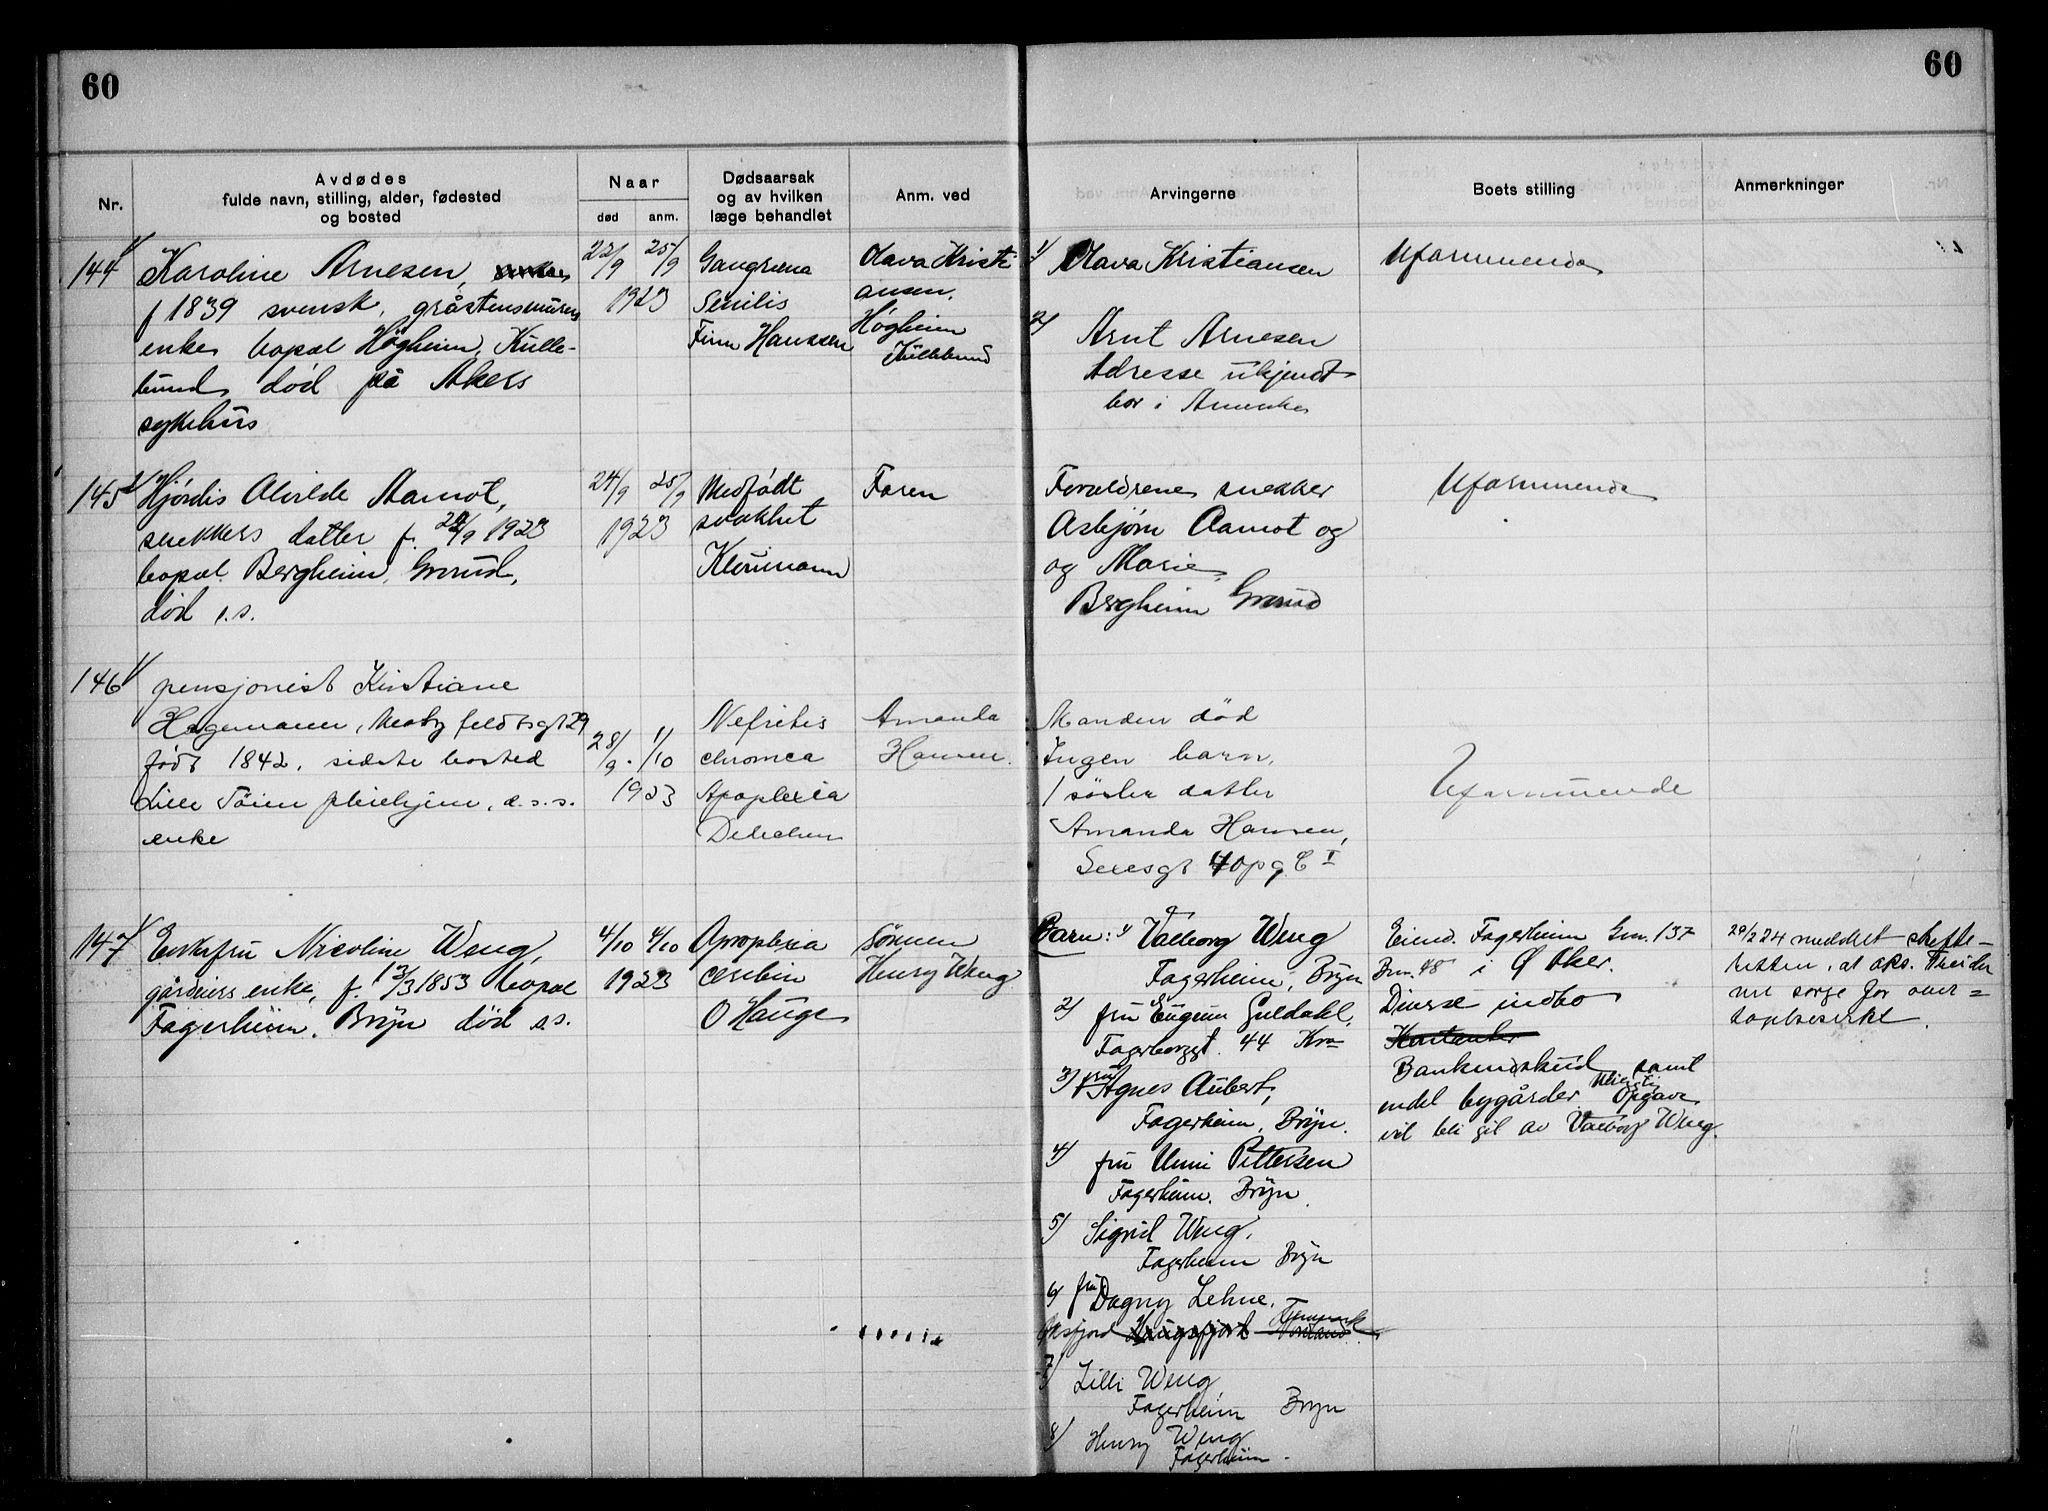 60
60
Nr.
Avdødes
fulde navn, stilling, alder, fødested
og bosted
Naar
død
anm.
Dødsaarsak
og av hvilken
læge behandlet
Anm. ved
Arvingerne
Boets stilling
Anmerkninger
144
Karoline Arnesen,
f 1839 svensk, gråstensmurers
enke bopæl Høgheim, Kulle-
bund død på Akers
sykehus
22/9 25/9
1923
Gangræna
Senilis
Finn Hanssen
Olava Kristi
ansen,
Høgheim
Kullebund
1) Olava Kristiansen
2) Arnt Arnesen
Adresse ukjendt
bor i Amerika
Uformuende
145
Hjørdis Alvilde Aamot,
snekkers datter f. 24/9 1923
bopæl Bergheim, Grorud,
død s.s.
24/9 25/9
1923
Medfødt
svakhet
Faren
Forældrene snekker
Asbjørn Aamot og
og Marie
Bergheim Grorud
Uformuende
146
pensjonist Kristiane
Hagemann,
født 1842, sidste bosted
Lille Tøien pleiehjem, d.s.s.
enke
28/9 1/10
1923
Nefritis
chronica
Apoplexia
Amanda
Hansen.
Manden død
Ingen barn,
1 søster datter
Amanda Hansen,
opg C I
Uformuende
147
Enkefru Nicoline Weng,
gårdeiers enke, f. 13/3 1853 bopæl
Fagerheim, Bryn død s.s.
4/10 4/10
1923
Apoplexia
cerebri
O Hauge
Sønnen
Henry Weng
Barn: 1) Valborg Weng
Fagerheim, Bryn
2) fru Eugenie Guldahl,
Fagerborggt. 44 Kra
3) fru Agnes Aubert,
Fagerheim, Bryn.
4) fru Unni Pettersen
Fagerheim. Bryn.
5) Sigrid Weng,
Fagerheim Bryn
6) fru Dagny Lehne,
Øksfjord Finmark
7) Lilli Weng
Fagerheim Bryn
8) Henry Weng
Fagerheim.
Eiend. Fagerheim Gnr. 137
Bnr. 48 i Ø Aker.
Diverse indbo
Kontanter
Bankindskud samt
endel bygårder Opgave
vil bli git av Valborg Weng.
29/2 24 meddelt skifte-
retten, at oks.
vil sorge for